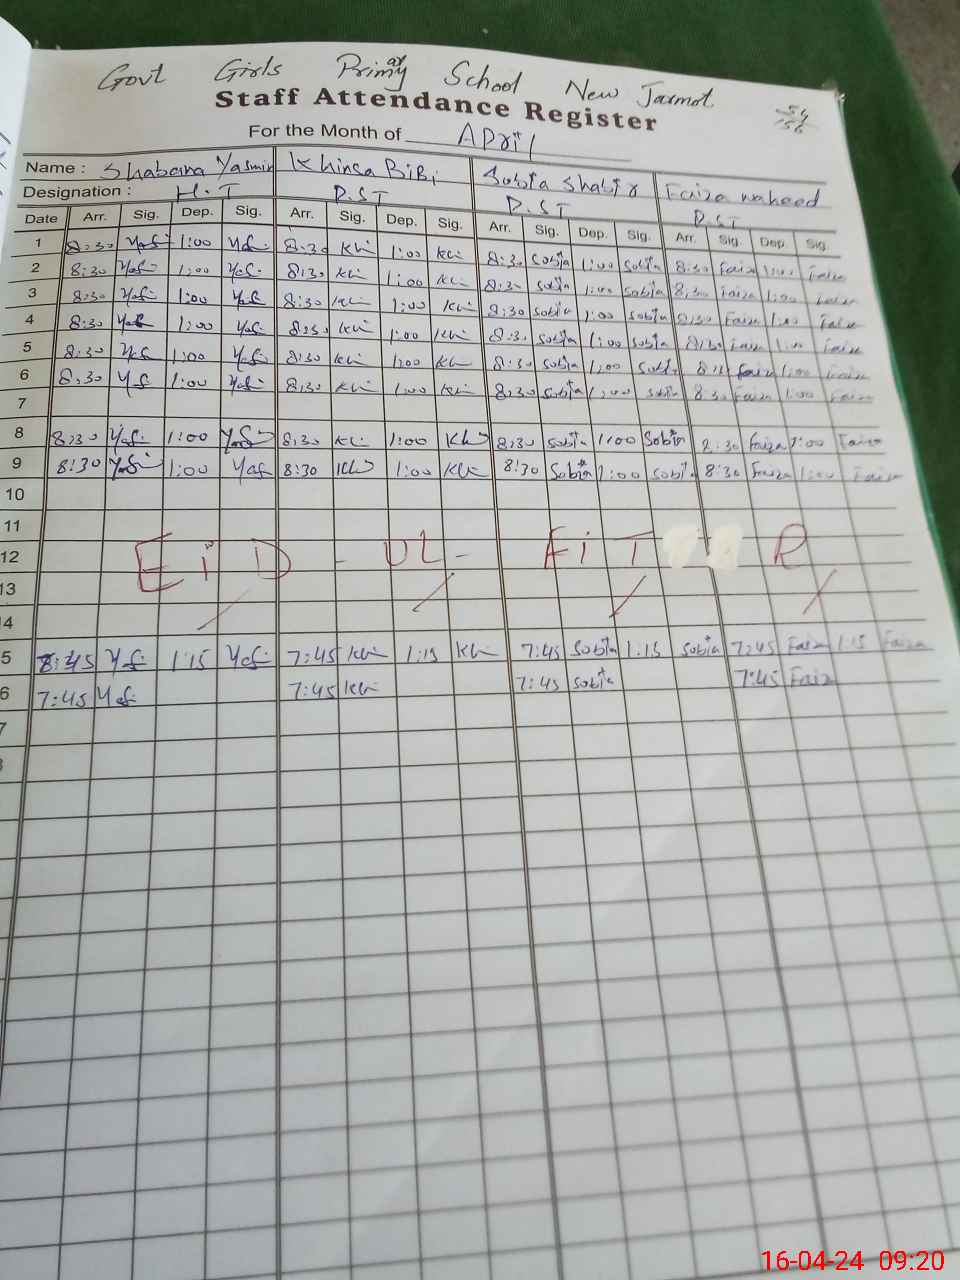 Govt Girls Primary School New Jarmot
Staff Attendance Register
For the Month of April
Name : Shabana Yasmin Khinsa BiBi Sobia Shabir Faiza waheed
Designation : H.T P.ST P.ST P.ST
Date Arr. Sig. Dep. Sig. Arr. Sig. Dep. Sig. Arr. Sig. Dep. Sig. Arr. Sig. Dep. Sig.
1 8:30 Yas 1:00 Yas 8:30 Khi 1:00 Khi 8:30 Sobia 1:00 Sobia 8:30 Faiza 1:00 Faiza
2 8:30 Yas 1:00 Yas 8:30 Khi 1:00 Khi 8:30 Sobia 1:00 Sobia 8:30 Faiza 1:00 Faiza
3 8:30 Yas 1:00 Yas 8:30 Khi 1:00 Khi 8:30 Sobia 1:00 Sobia 8:30 Faiza 1:00 Faiza
4 8:30 Yas 1:00 Yas 8:30 Khi 1:00 Khi 8:30 Sobia 1:00 Sobia 8:30 Faiza 1:00 Faiza
5 8:30 Yas 1:00 Yas 8:30 Khi 1:00 Khi 8:30 Sobia 1:00 Sobia Faiza 1:00 Faiza
6 8:30 Yas 1:00 Yas 8:30 Khi 1:00 Khi 8:30 Sobia 1:00 Sobia 8:30 Faiza 1:00 Faiza
7
8 8:30 Yas 1:00 Yas 8:30 Khi 1:00 Khi 8:30 Sobia 1:00 Sobia 8:30 Faiza 1:00 Faiza
9 8:30 Yas 1:00 Yas 8:30 Khi 1:00 Khi 8:30 Sobia 1:00 Sobia 8:30 Faiza 1:00 Faiza
10
11
12 EiD - UL - FiT R
13
4
5 8:45 Yas 1:15 Yas 7:45 Khi 1:15 Khi 7:45 Sobia 1:15 Sobia 7:45 Faiza 1:15 Faiza
6 7:45 Yas 7:45 Khi 7:45 Sobia 7:45 Faiza
7
16-04-24 09:20